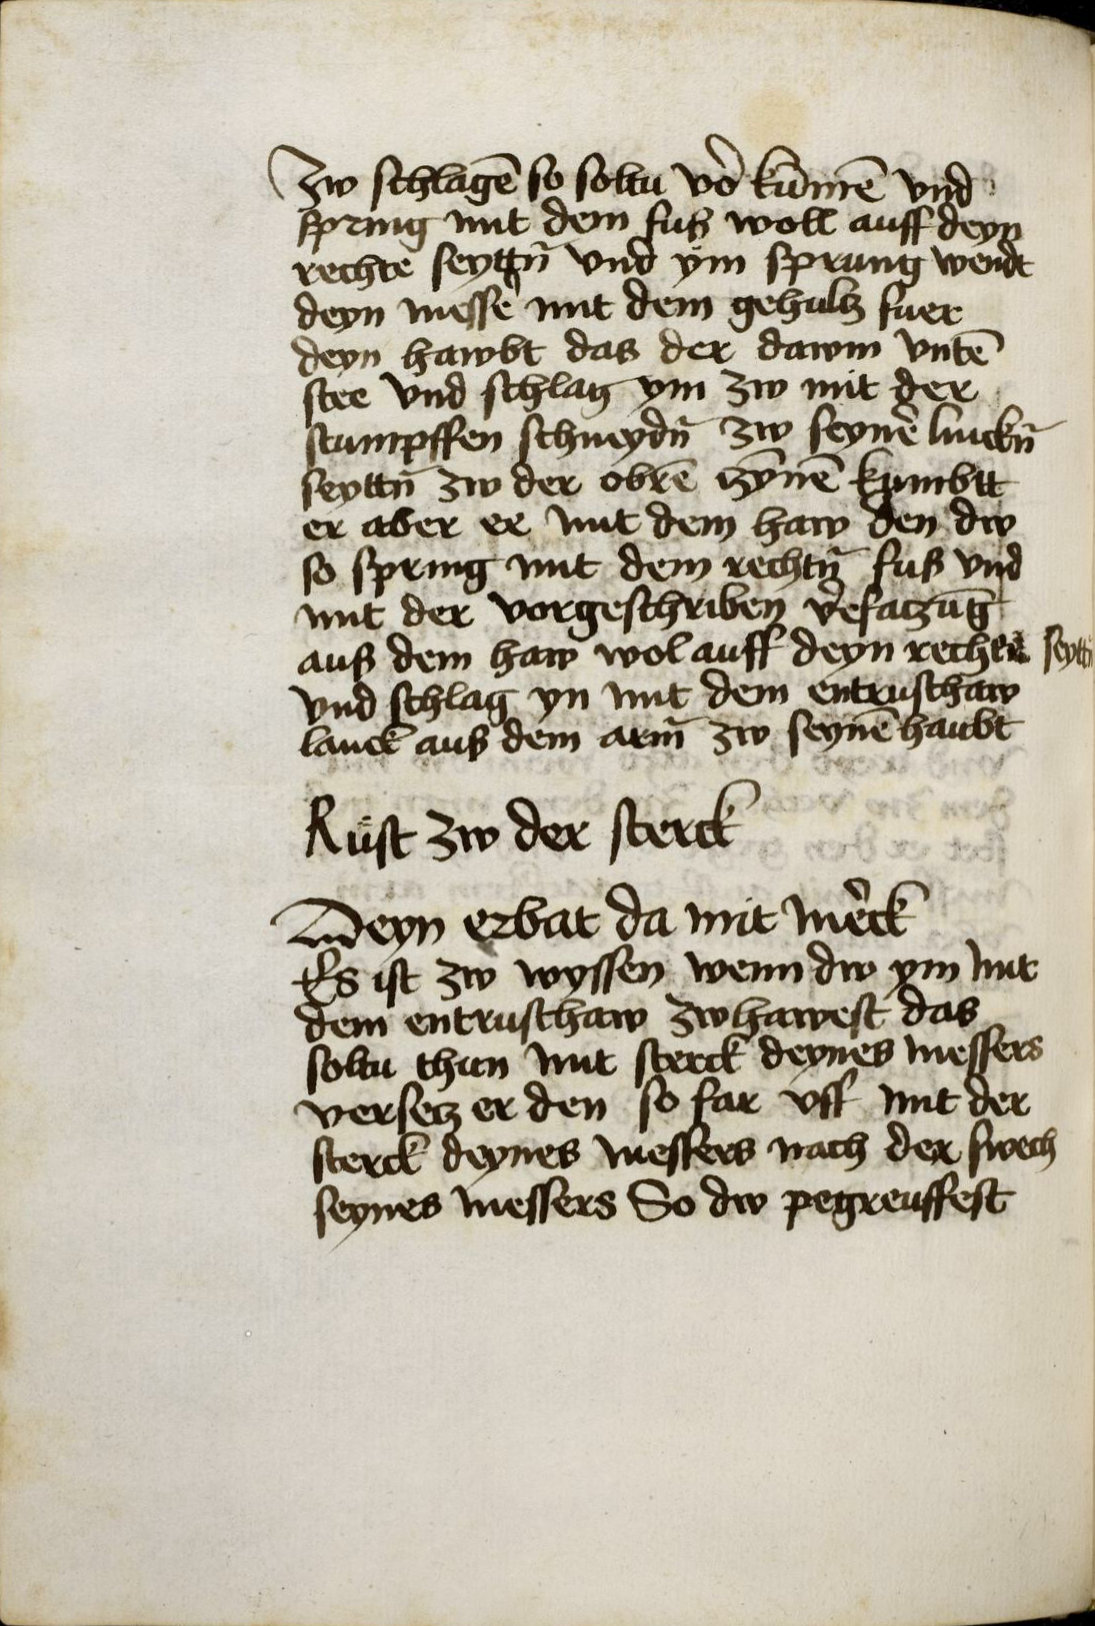 zw schlagē so soltu vor̄ kūmē vnd
spring mit dem fuß woll auff deyn
rechte seyttn̄ vnd ym sprung wendt
deyn messer mit dem gehultz fuer
deyn hawbt das der dawm vntē
stee vnd schlag ym zw mit der
stumpffen schneydn̄ zw seyner̄ linckn̄
seyttn̄ zw der obrē zȳnē kumbtt
er aber ee mit dem haw den dw
so spring mit dem rechtn̄ fuß vnd
mit der vorgeschriben v̄satzūg
auß dem haw wol auff deyn rechte seyttn̄
vnd schlag yn mit dem entrusthaw
lanck auß dem arm̄ zw seynē haubt
Rüst zw der sterck
Deyn erbat da mit mer̄ck
Es ist zw wyssen wenn dw ym mit
dem entrusthaw zwhawest das
soltu thun mit sterck deynes messers
versetz er den so far vff mit der
sterck deynes messers nach der swech
seynes messers So dw pegreuffest